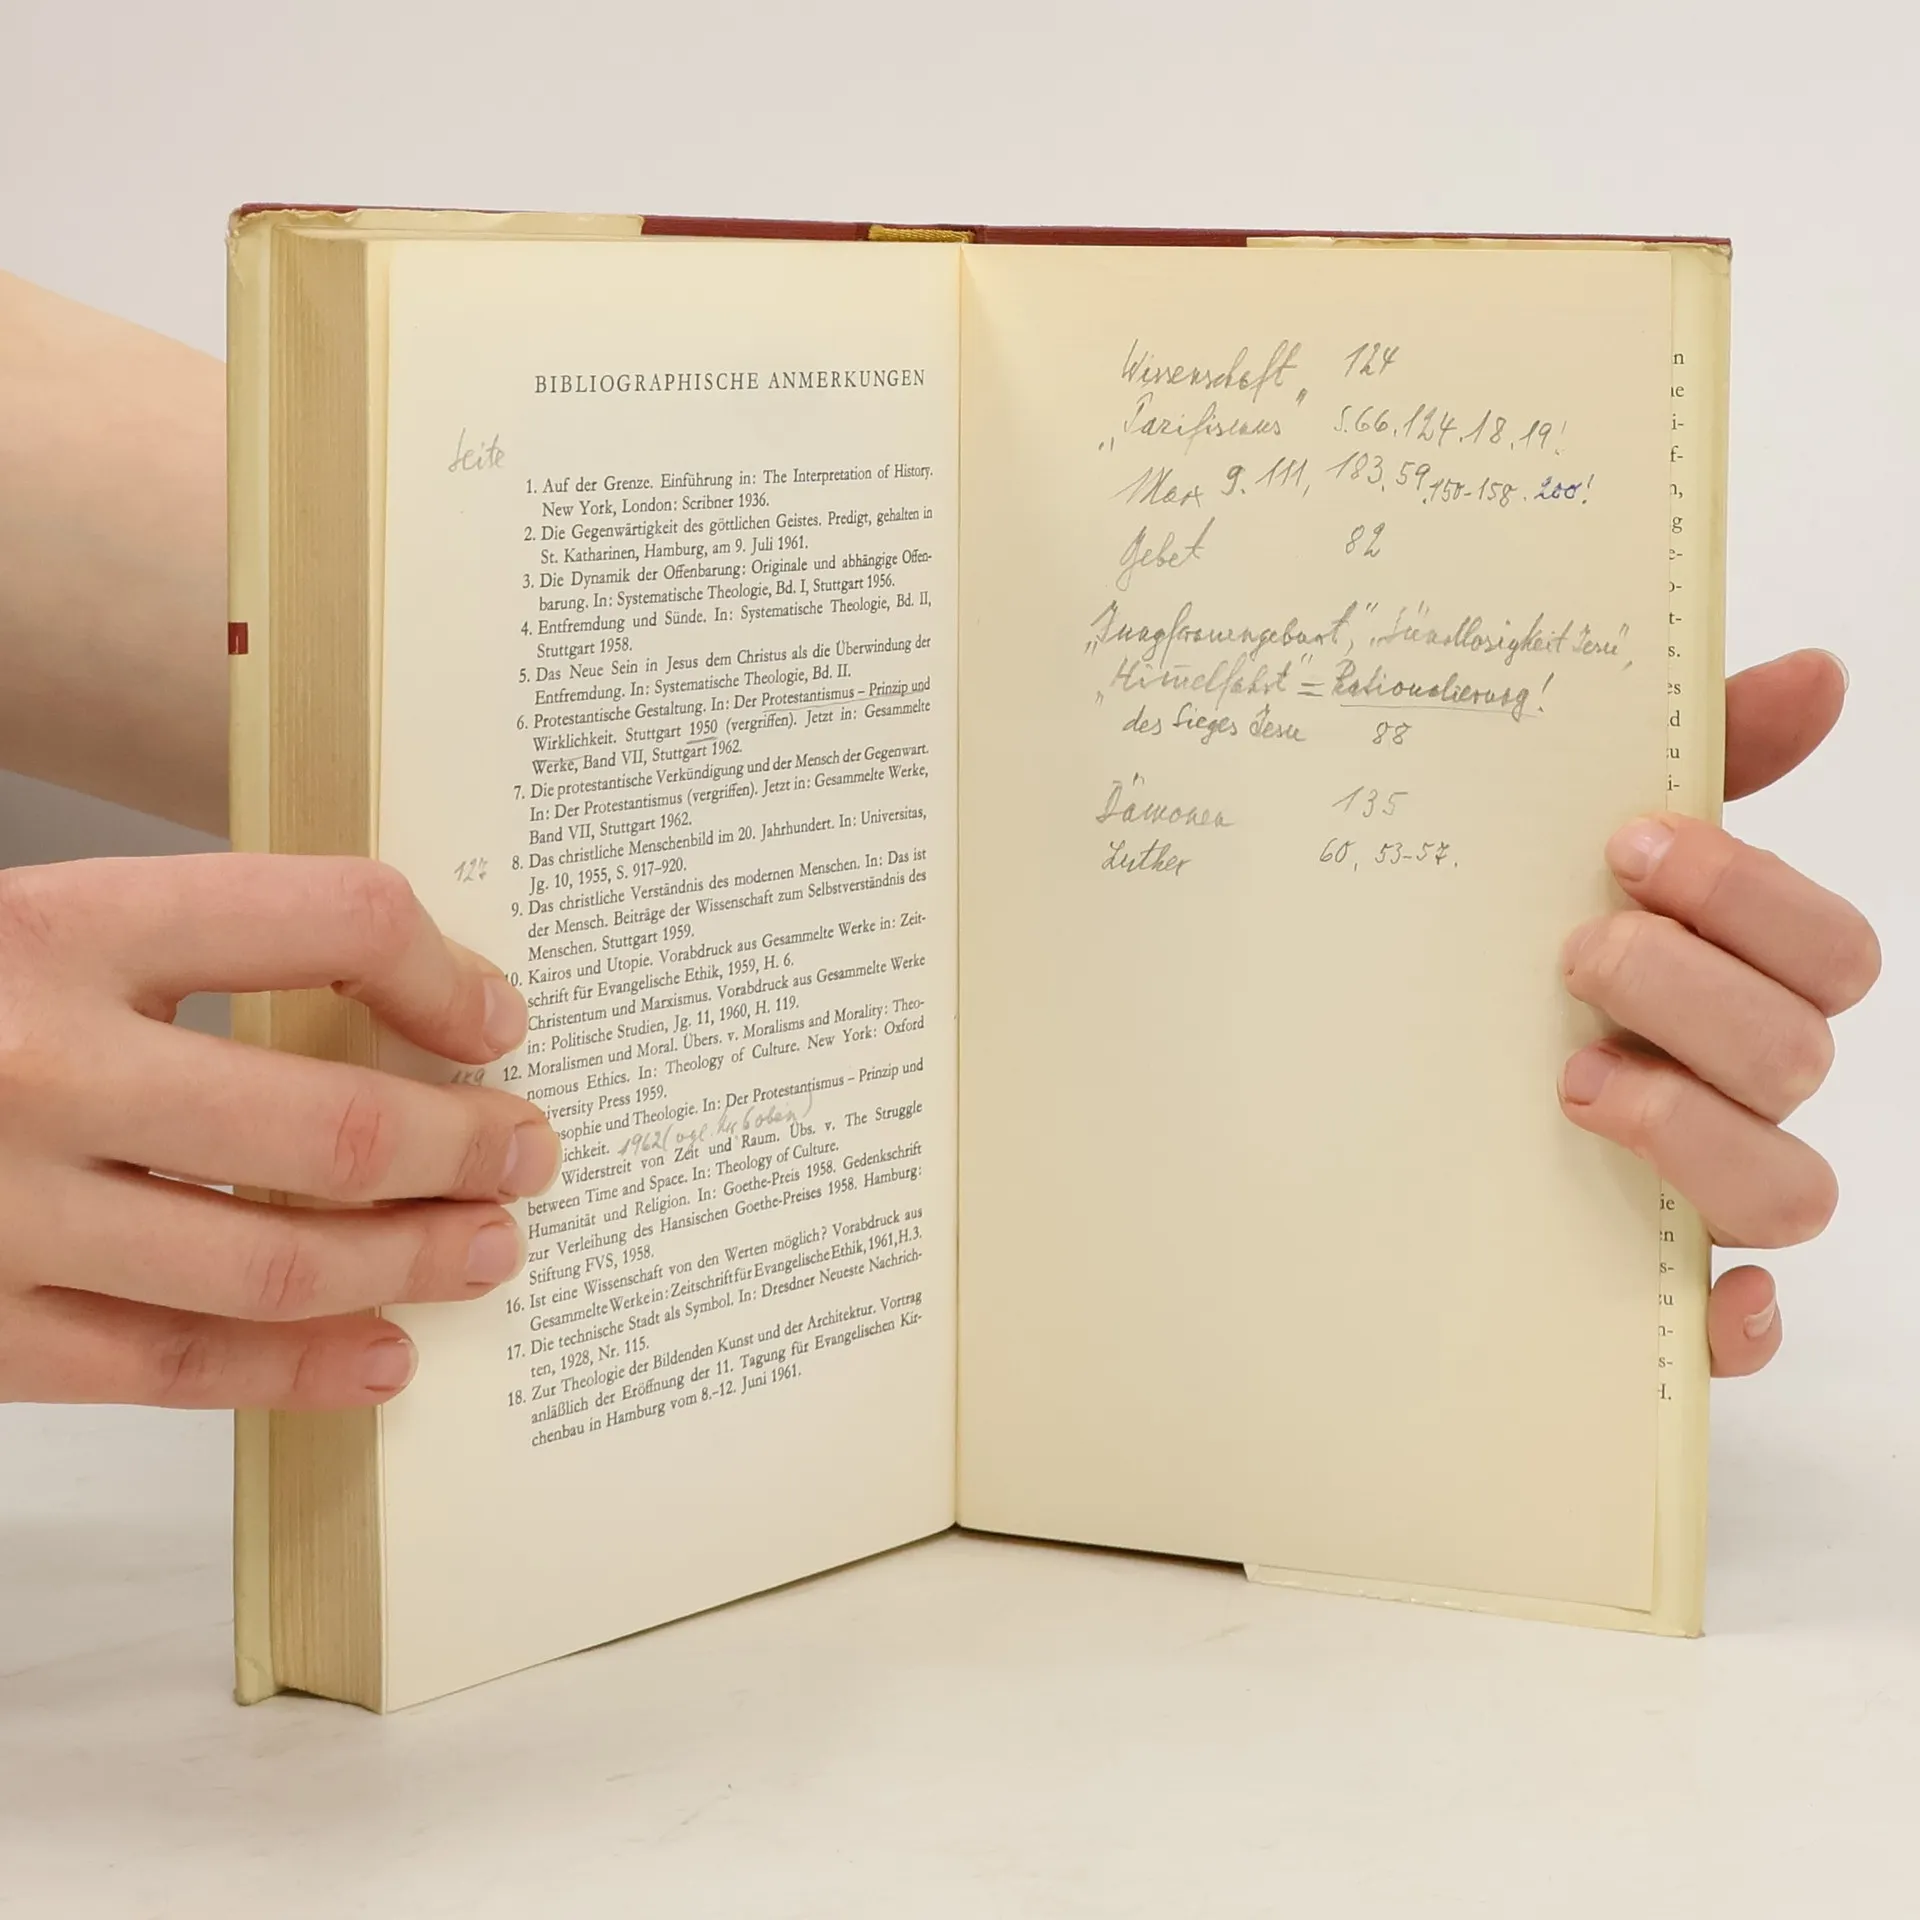 BIBLIOGRAPHISCHE ANMERKUNGEN
Seite
1. Auf der Grenze. Einführung in: The Interpretation of History.
New York, London: Scribner 1936.
2. Die Gegenwärtigkeit des göttlichen Geistes. Predigt, gehalten in
St. Katharinen, Hamburg, am 9. Juli 1961.
3. Die Dynamik der Offenbarung: Originale und abhängige Offen-
barung. In: Systematische Theologie, Bd. I, Stuttgart 1956.
4. Entfremdung und Sünde. In: Systematische Theologie, Bd. II,
Stuttgart 1958.
5. Das Neue Sein in Jesus dem Christus als die Überwindung der
Entfremdung. In: Systematische Theologie, Bd. II.
6. Protestantische Gestaltung. In: Der Protestantismus – Prinzip und
Wirklichkeit. Stuttgart 1950 (vergriffen). Jetzt in: Gesammelte
Werke, Band VII, Stuttgart 1962.
7. Die protestantische Verkündigung und der Mensch der Gegenwart.
In: Der Protestantismus (vergriffen). Jetzt in: Gesammelte Werke,
Band VII, Stuttgart 1962.
127 8. Das christliche Menschenbild im 20. Jahrhundert. In: Universitas,
Jg. 10, 1955, S. 917–920.
9. Das christliche Verständnis des modernen Menschen. In: Das ist
der Mensch. Beiträge der Wissenschaft zum Selbstverständnis des
Menschen. Stuttgart 1959.
10. Kairos und Utopie. Vorabdruck aus Gesammelte Werke in: Zeit-
schrift für Evangelische Ethik, 1959, H. 6.
Christentum und Marxismus. Vorabdruck aus Gesammelte Werke
in: Politische Studien, Jg. 11, 1960, H. 119.
12. Moralismen und Moral. Übers. v. Moralisms and Morality: Theo-
nomous Ethics. In: Theology of Culture. New York: Oxford
iversity Press 1959.
sophie und Theologie. In: Der Protestantismus – Prinzip und
lichkeit. 1962 (vgl. Nr. 6 oben)
Widerstreit von Zeit und Raum. Übs. v. The Struggle
between Time and Space. In: Theology of Culture.
Humanität und Religion. In: Goethe-Preis 1958. Gedenkschrift
zur Verleihung des Hansischen Goethe-Preises 1958. Hamburg:
Stiftung FVS, 1958.
16. Ist eine Wissenschaft von den Werten möglich? Vorabdruck aus
Gesammelte Werke in: Zeitschrift für Evangelische Ethik, 1961, H. 3.
17. Die technische Stadt als Symbol. In: Dresdner Neueste Nachrich-
ten, 1928, Nr. 115.
18. Zur Theologie der Bildenden Kunst und der Architektur. Vortrag
anläßlich der Eröffnung der 11. Tagung für Evangelischen Kir-
chenbau in Hamburg vom 8.–12. Juni 1961.
Wissenschaft 124
„Pazifismus" S. 66. 124. 18. 19!
Marx 9. 111, 183. 59. 150-158. 200!
Gebet 82
„Jungfrauengeburt", „Sündlosigkeit Jesu",
„Himmelfahrt" = Rationalierung!
des Sieges Jesu 88
Dämonen 135
Luther 60, 53-57.